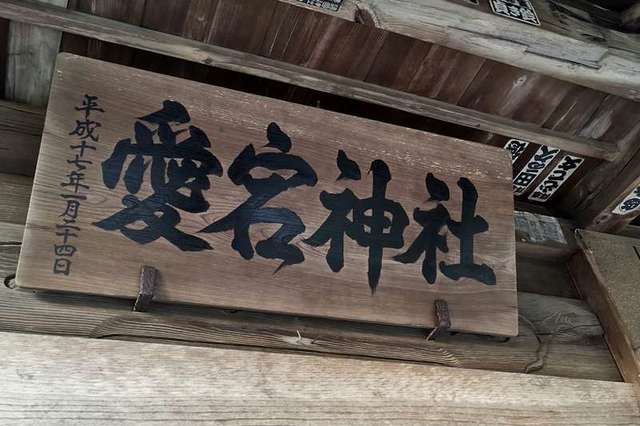 愛宕神社
平成十七年一月二十四日